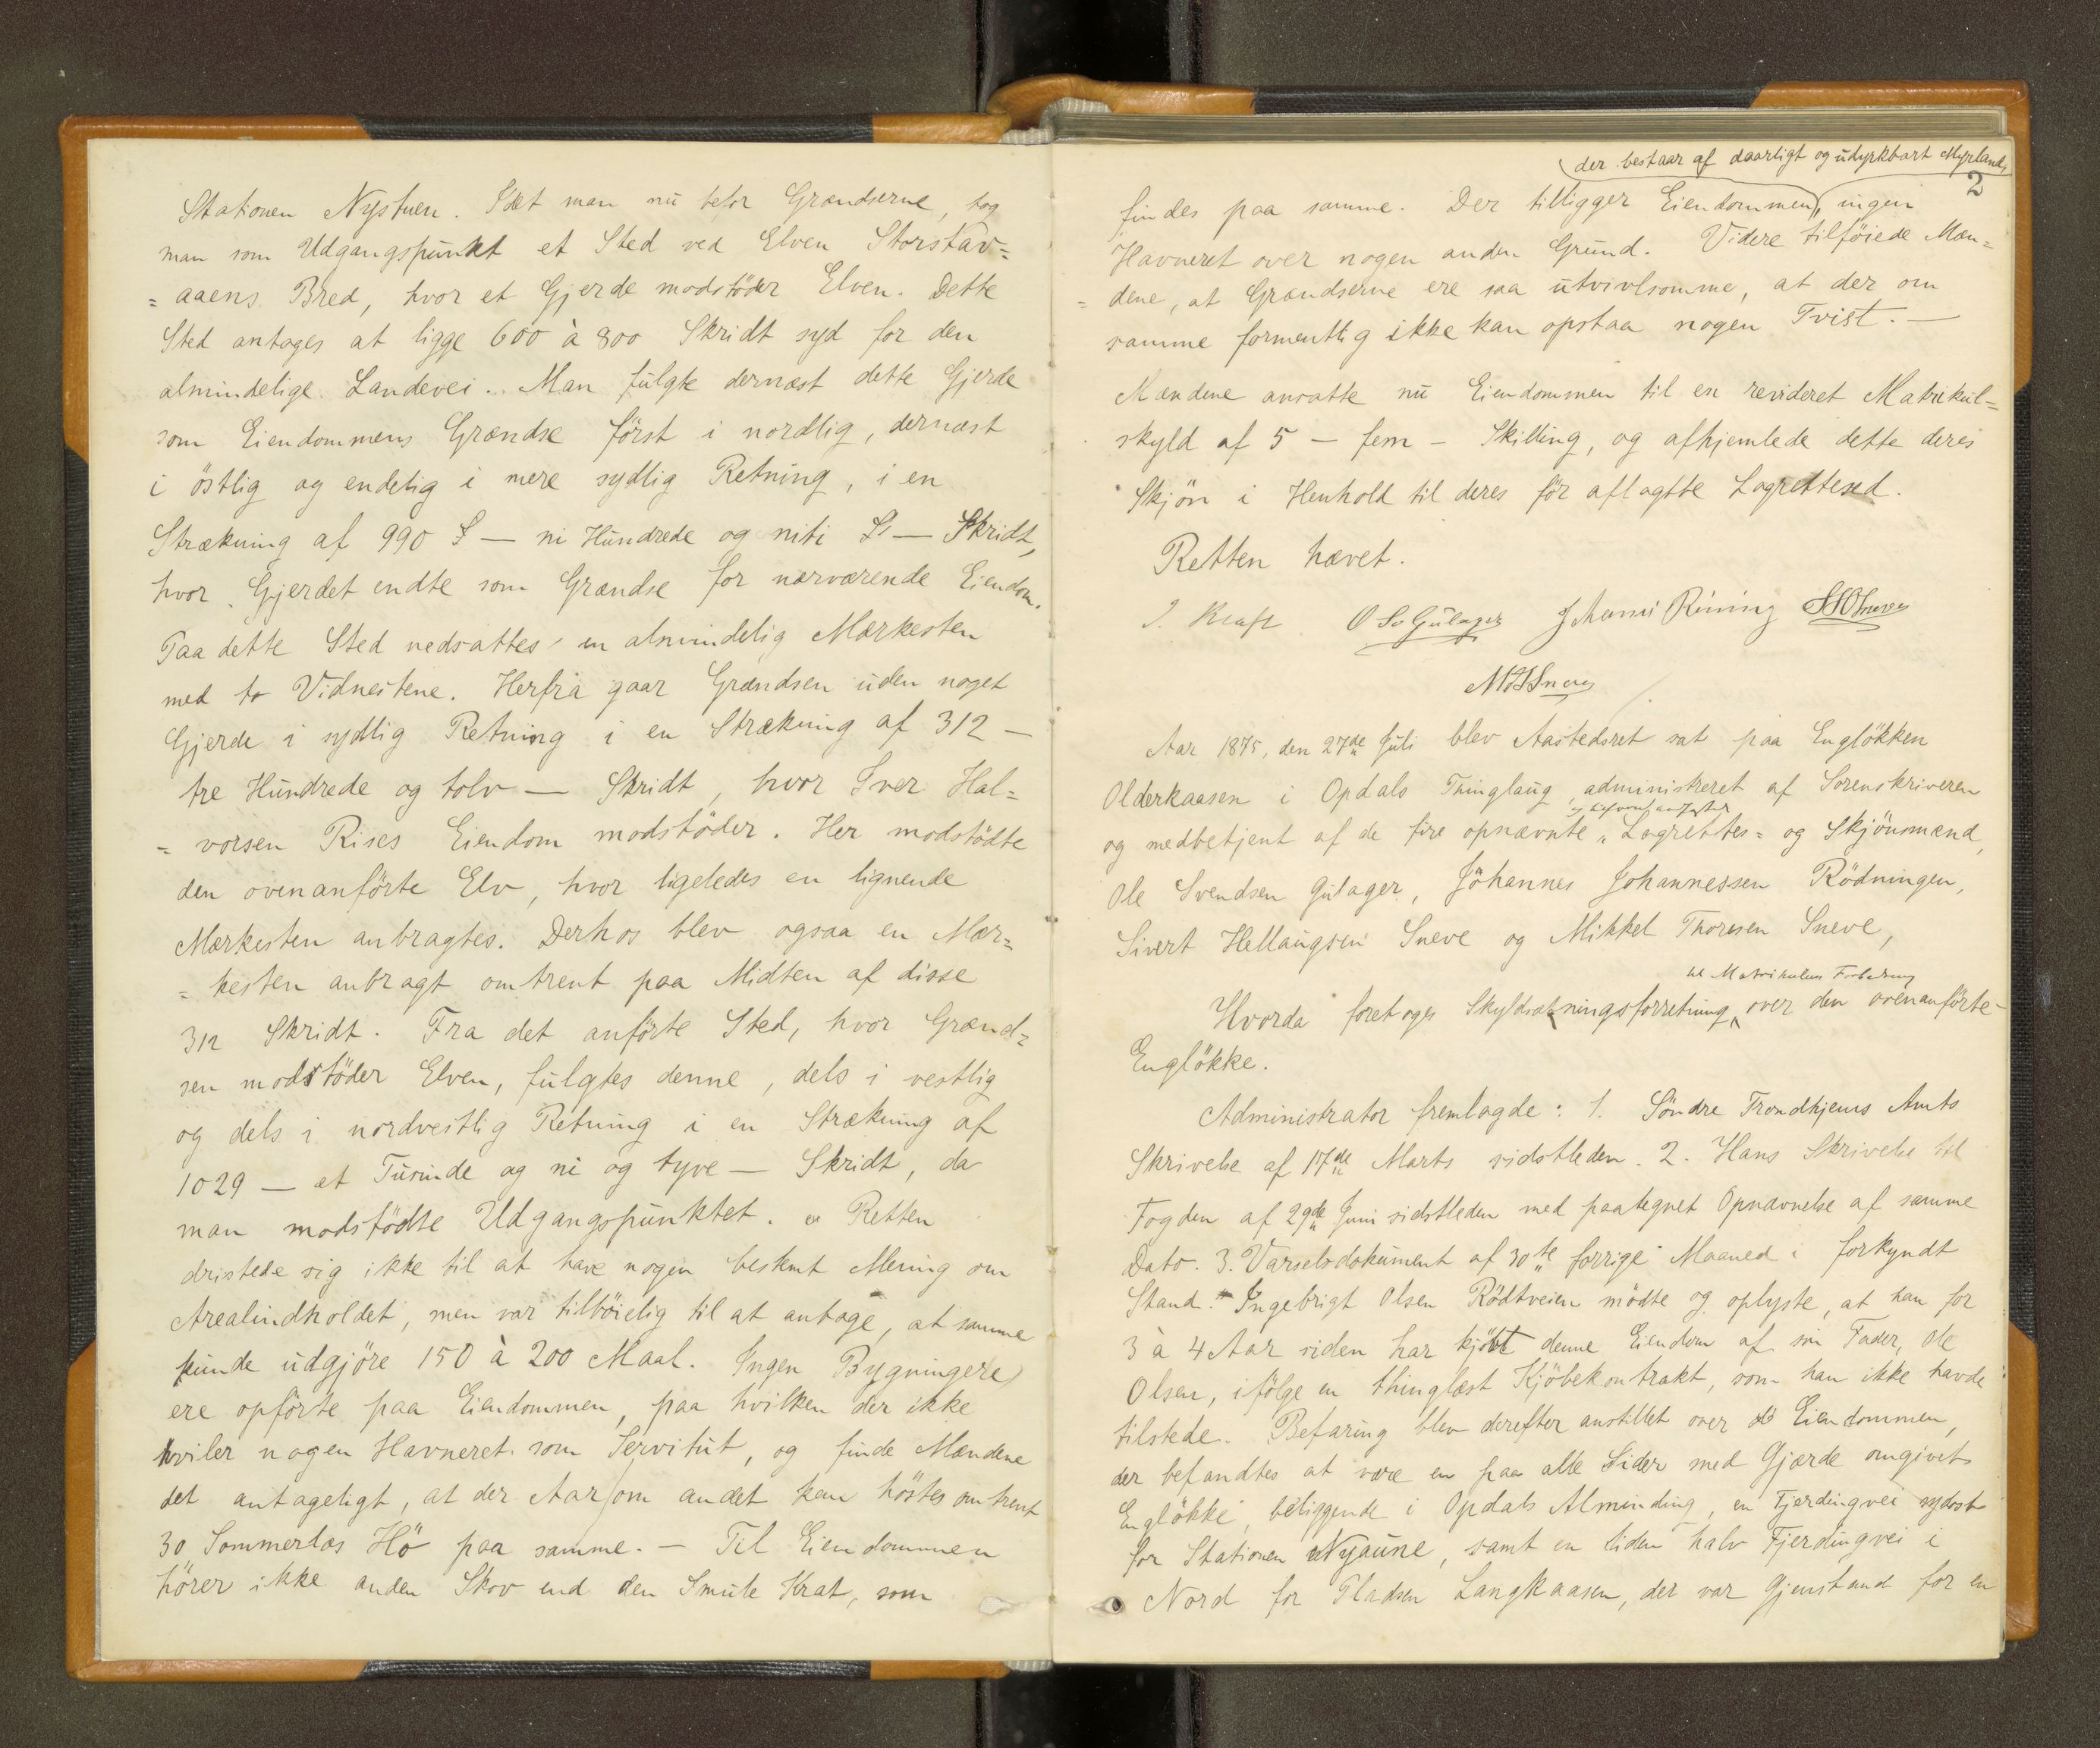 Stationen Nystuen. Idet man nu befor Grændserne, tog
man som Udgangspunkt et Sted ved Elven Storstav=
=aaens Bred, hvor et Gjerde modstöder Elven. Dette
Sted antages at ligge 600 à 800 Skridt syd for den
almindelige Landevei. Man fulgte dernæst dette Gjerde
som Eiendommens Grændse först i nordlig, dernæst
i östlig og endelig i mere sydlig Retning, i en
Strækning af 990 — ni Hundrede og niti — Skridt,
hvor Gjerdet endte som Grændse for nærværende Eiendom.
Paa dette Sted nedsattes en almindelig Mærkesten
med to Vidnestene. Herfra gaar Grændsen uden noget
Gjerde i sydlig Retning i en Strækning af 312 —
tre Hundrede og tolv — Skridt, hvor Iver Hal=
=vorsen Rises Eiendom modstöder. Her modstödte
den ovenanförte Elv, hvor ligeledes en lignende
Mærkesten anbragtes. Derhos blev ogsaa en Mær=
=kesten anbragt omtrent paa Midten af disse
312 Skridt. Fra det anförte Sted, hvor Grænd=
sen modstöder Elven, fulgtes denne, dels i vestlig
og dels i nordvestlig Retning i en Strækning af
1029 — et Tusinde og ni og tyve — Skridt, da
man modstödte Udgangspunktet. Retten
dristede sig ikke til at have nogen bestemt Mening om
Arealindholdet, men var tilböielig til at antage, at samme
kunde udgjöre 150 à 200 Maal. Ingen Bygninger
ere opförte paa Eiendommen, paa hvilken der ikke
hviler nogen Havneret som Servitut, og finde Mændene
det antageligt, at der Aar om andet kan höstes omtrent
30 Sommerlæs Hö paa samme. — Til Eiendommen
hörer ikke anden Skov end den Smule Krat, som
der bestaar af daarligt og udyrkbart Myrland,
2
findes paa samme. Der tilligger Eiendommen, ingen
Havneret over nogen anden Grund. Videre tilföiede Mæn=
=dene, at Grændserne ere saa utvivlsomme, at der om
samme formentlig ikke kan opstaa nogen Tvist. —
Mændene ansatte nu Eiendommen til en revideret Matrikul=
skyld af 5 — fem — Skilling, og afhjemlede dette deres
Skjön i Henhold til deres för aflagte Lagretteed.
Retten hævet.
J. Kraft O S Gulager Johannes Röning SHSneve
MTSneve
Aar 1875, den 27de Juli blev Aastedsret sat paa Englökken
Olderkaasen i Opdals Thinglaug, administreret af Sorenskriveren
og medbetjent af de fire opnævnte Lagrettes= og Skjönsmænd,
Ole Svendsen Gulager, Johannes Johannessen Rödningen,
Sivert Hellaugsen Sneve og Mikkel Thoresen Sneve,
til Matrikulens Forbedring
Hvorda foretoges Skyldsætningsforretning over den ovenanförte
Englökke.
Administrator fremlagde: 1. Söndre Trondhjems Amts
Skrivelse af 17de Marts sidstleden. 2. Hans Skrivelse til
Fogden af 29de Juni sidstleden med paategnet Opnævnelse af samme
Dato. 3. Varselsdokument af 30te forrige Maaned i forkyndt
Stand. Ingebrigt Olsen Rödtveien mödte og oplyste, at han for
3 à 4 Aar siden har kjöbt denne Eiendom af sin Fader, Ole
Olsen, ifölge en thinglæst Kjöbekontrakt, som han ikke havde
tilstede. Befaring blev derefter anstillet over Eiendommen,
der befandtes at være en paa alle Sider med Gjærde omgivet
Englökke, beliggende i Opdals Alminding, en Fjerdingvei sydost
for Stationen Nyaune, samt en liden halv Fjerdingvei i
Nord for Pladsen Langkaasen, der var Gjenstand for en